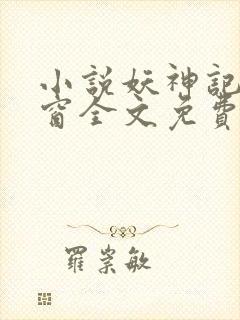 小説妖神記
窗全文免費
羅崇敏